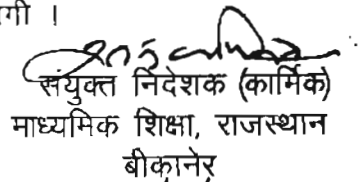 गी ।
संयुक्त निदेशक (कार्मिक)
माध्यमिक शिक्षा, राजस्थान
बीकानेर